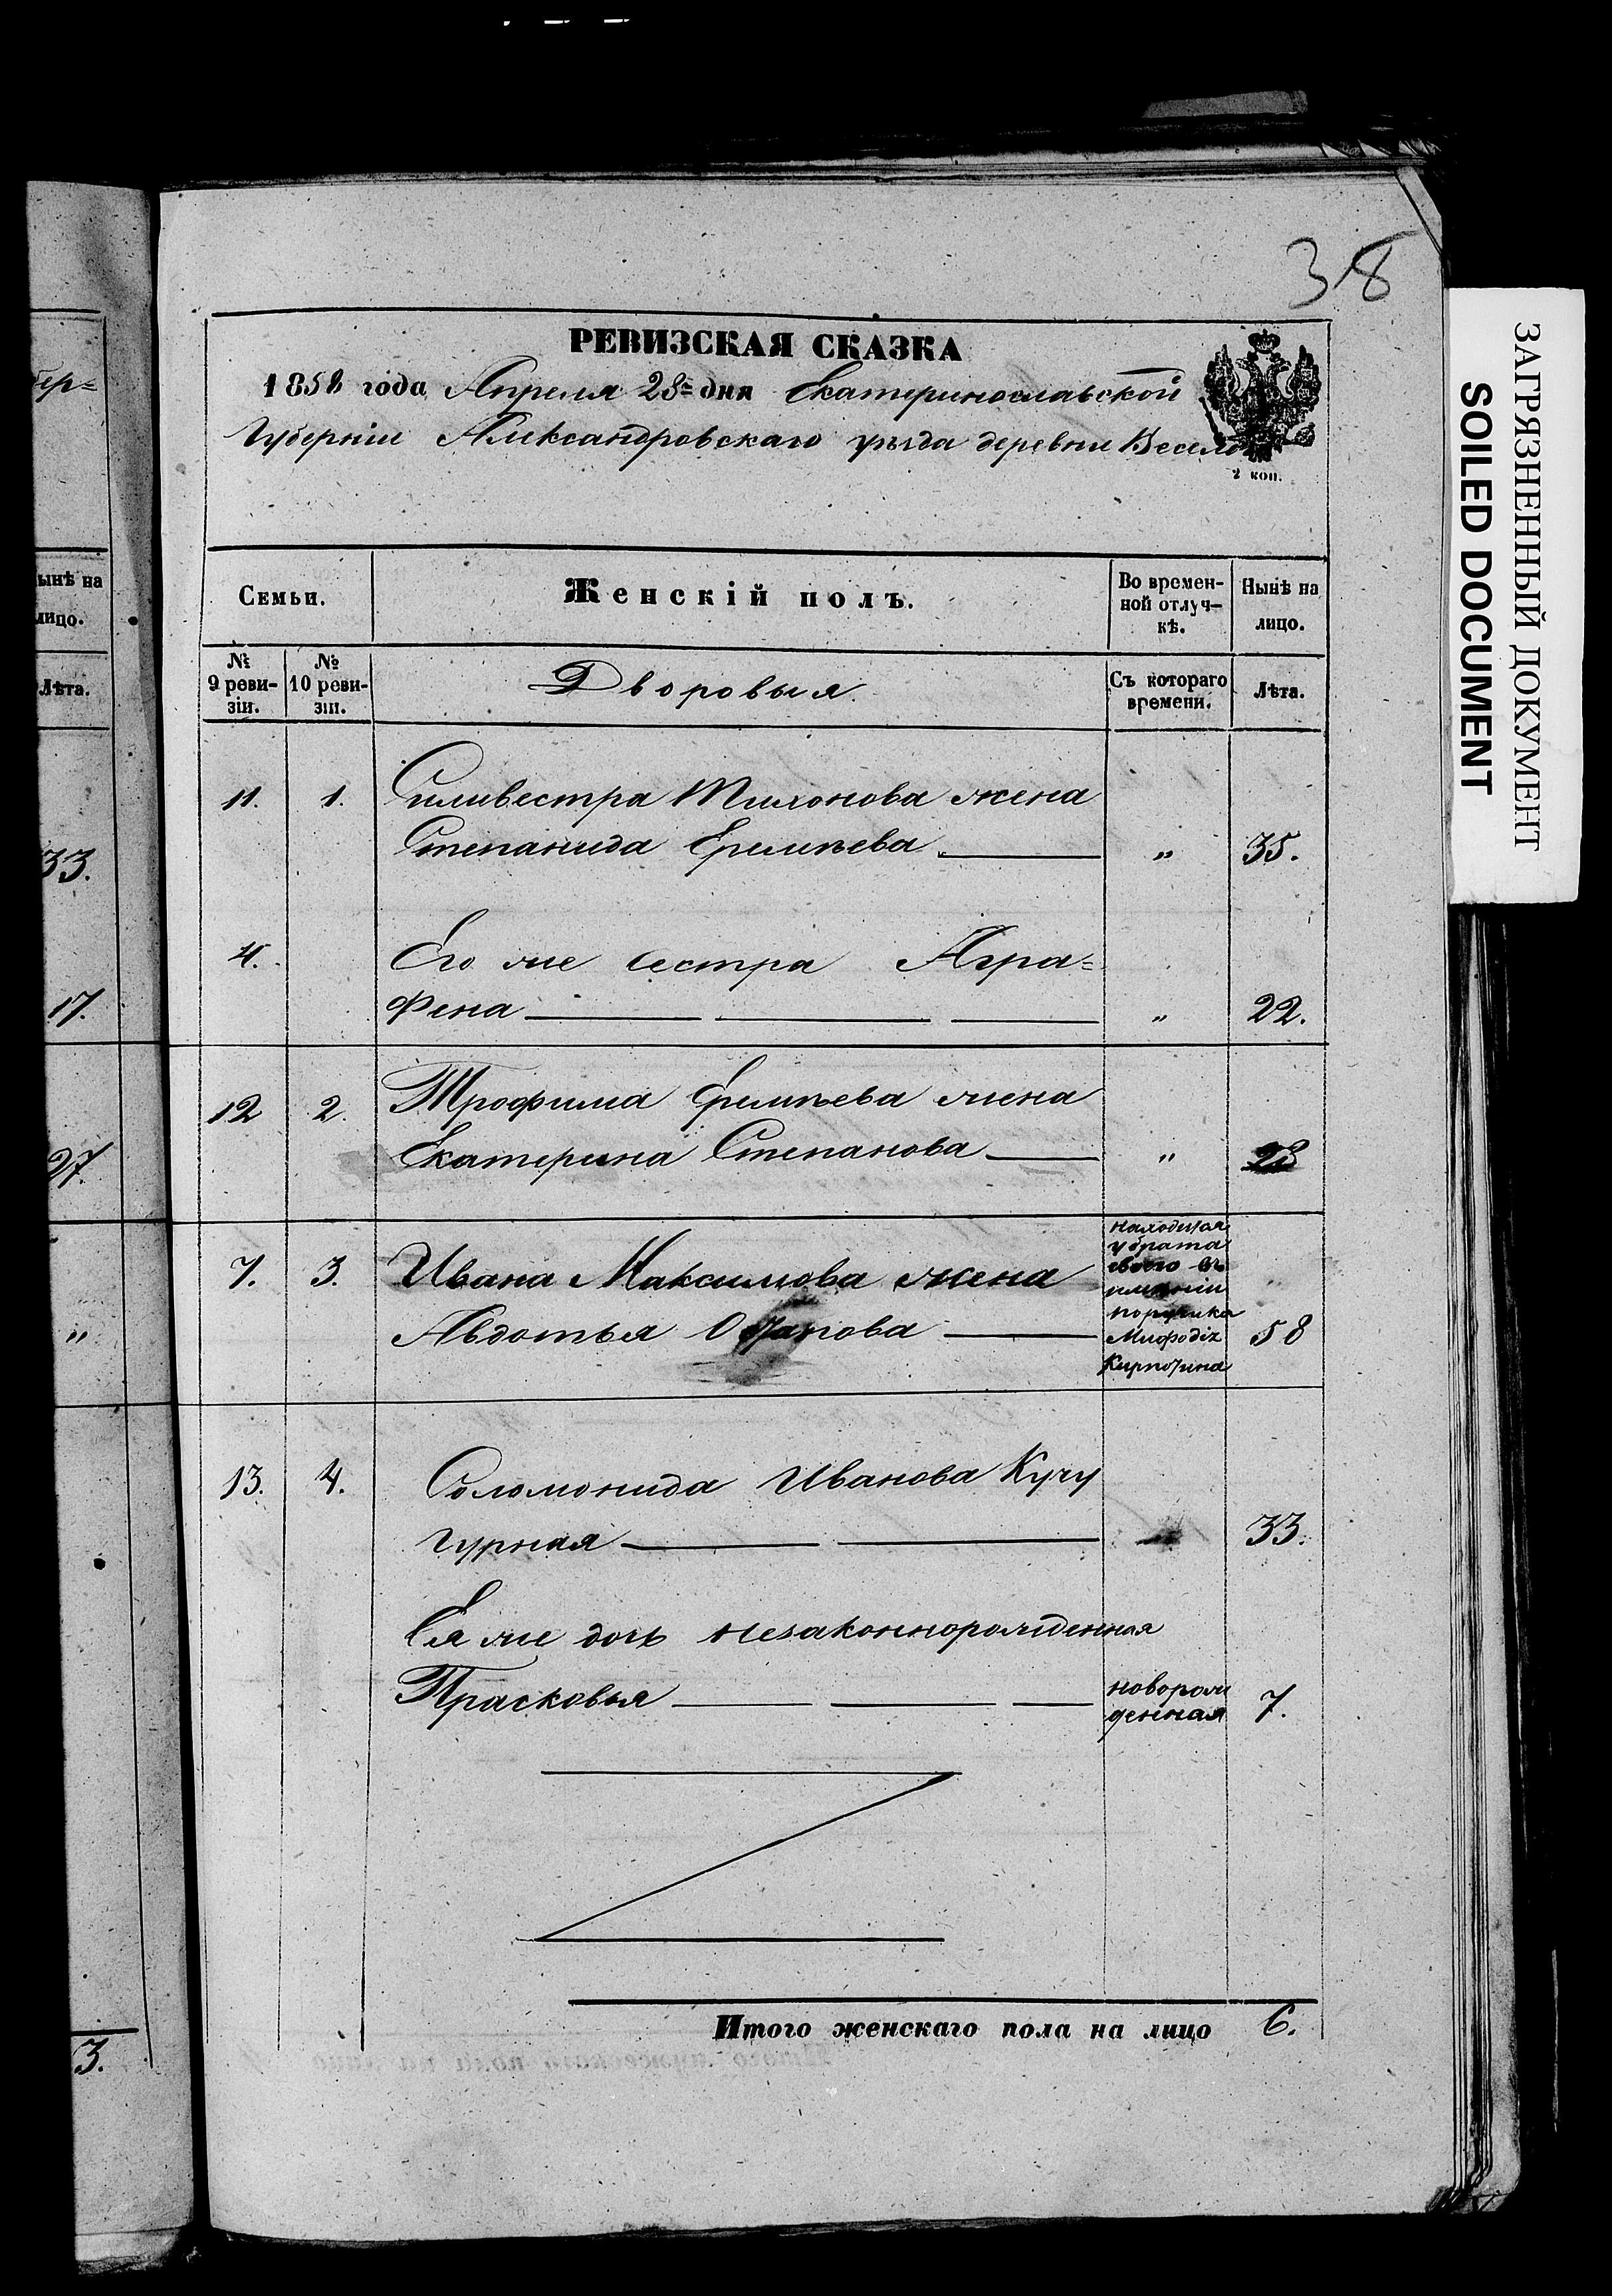 38
РЕВИЗСКАЯ СКАЗКА
1858 года Апреля 28го дня Екатеринославской
Губерніи Александровскаго уѣзда деревни Веселой
2 коп.
Семьи.
Женскій полъ.
Во времен-
ной отлуч-
кѣ.
Нынѣ на
лицо.
№
9 реви-
зіи.
№
10 реви-
зіи.
Дворовыя
Съ котораго
времени.
Лѣта.
11. 1. Силивестра Тихонова жена
Степанида Еремѣева „ 35.
4. Его же сестра Агра=
фена „ 22.
12 2. Трофима Еремѣева жена
Екатерина Степанова „ 23
7. 3. Ивана Максимова жена
Авдотья
находится
у брата
своего въ
имѣніи
поручика
Мифодія
Кирпотина
58
13. 4. Соломонида Иванова Кучу
гурная 33.
Ея же дочь незаконнорожденная
Прасковья
новорож
денная
7.
Итого женскаго пола на лицо 6.
бер=
ынѣ на
лицо.
Лѣта.
33.
17.
27.
„
3.
ЗАГРЯЗНЕННЫЙ ДОКУМЕНТ
SOILED DOCUMENT